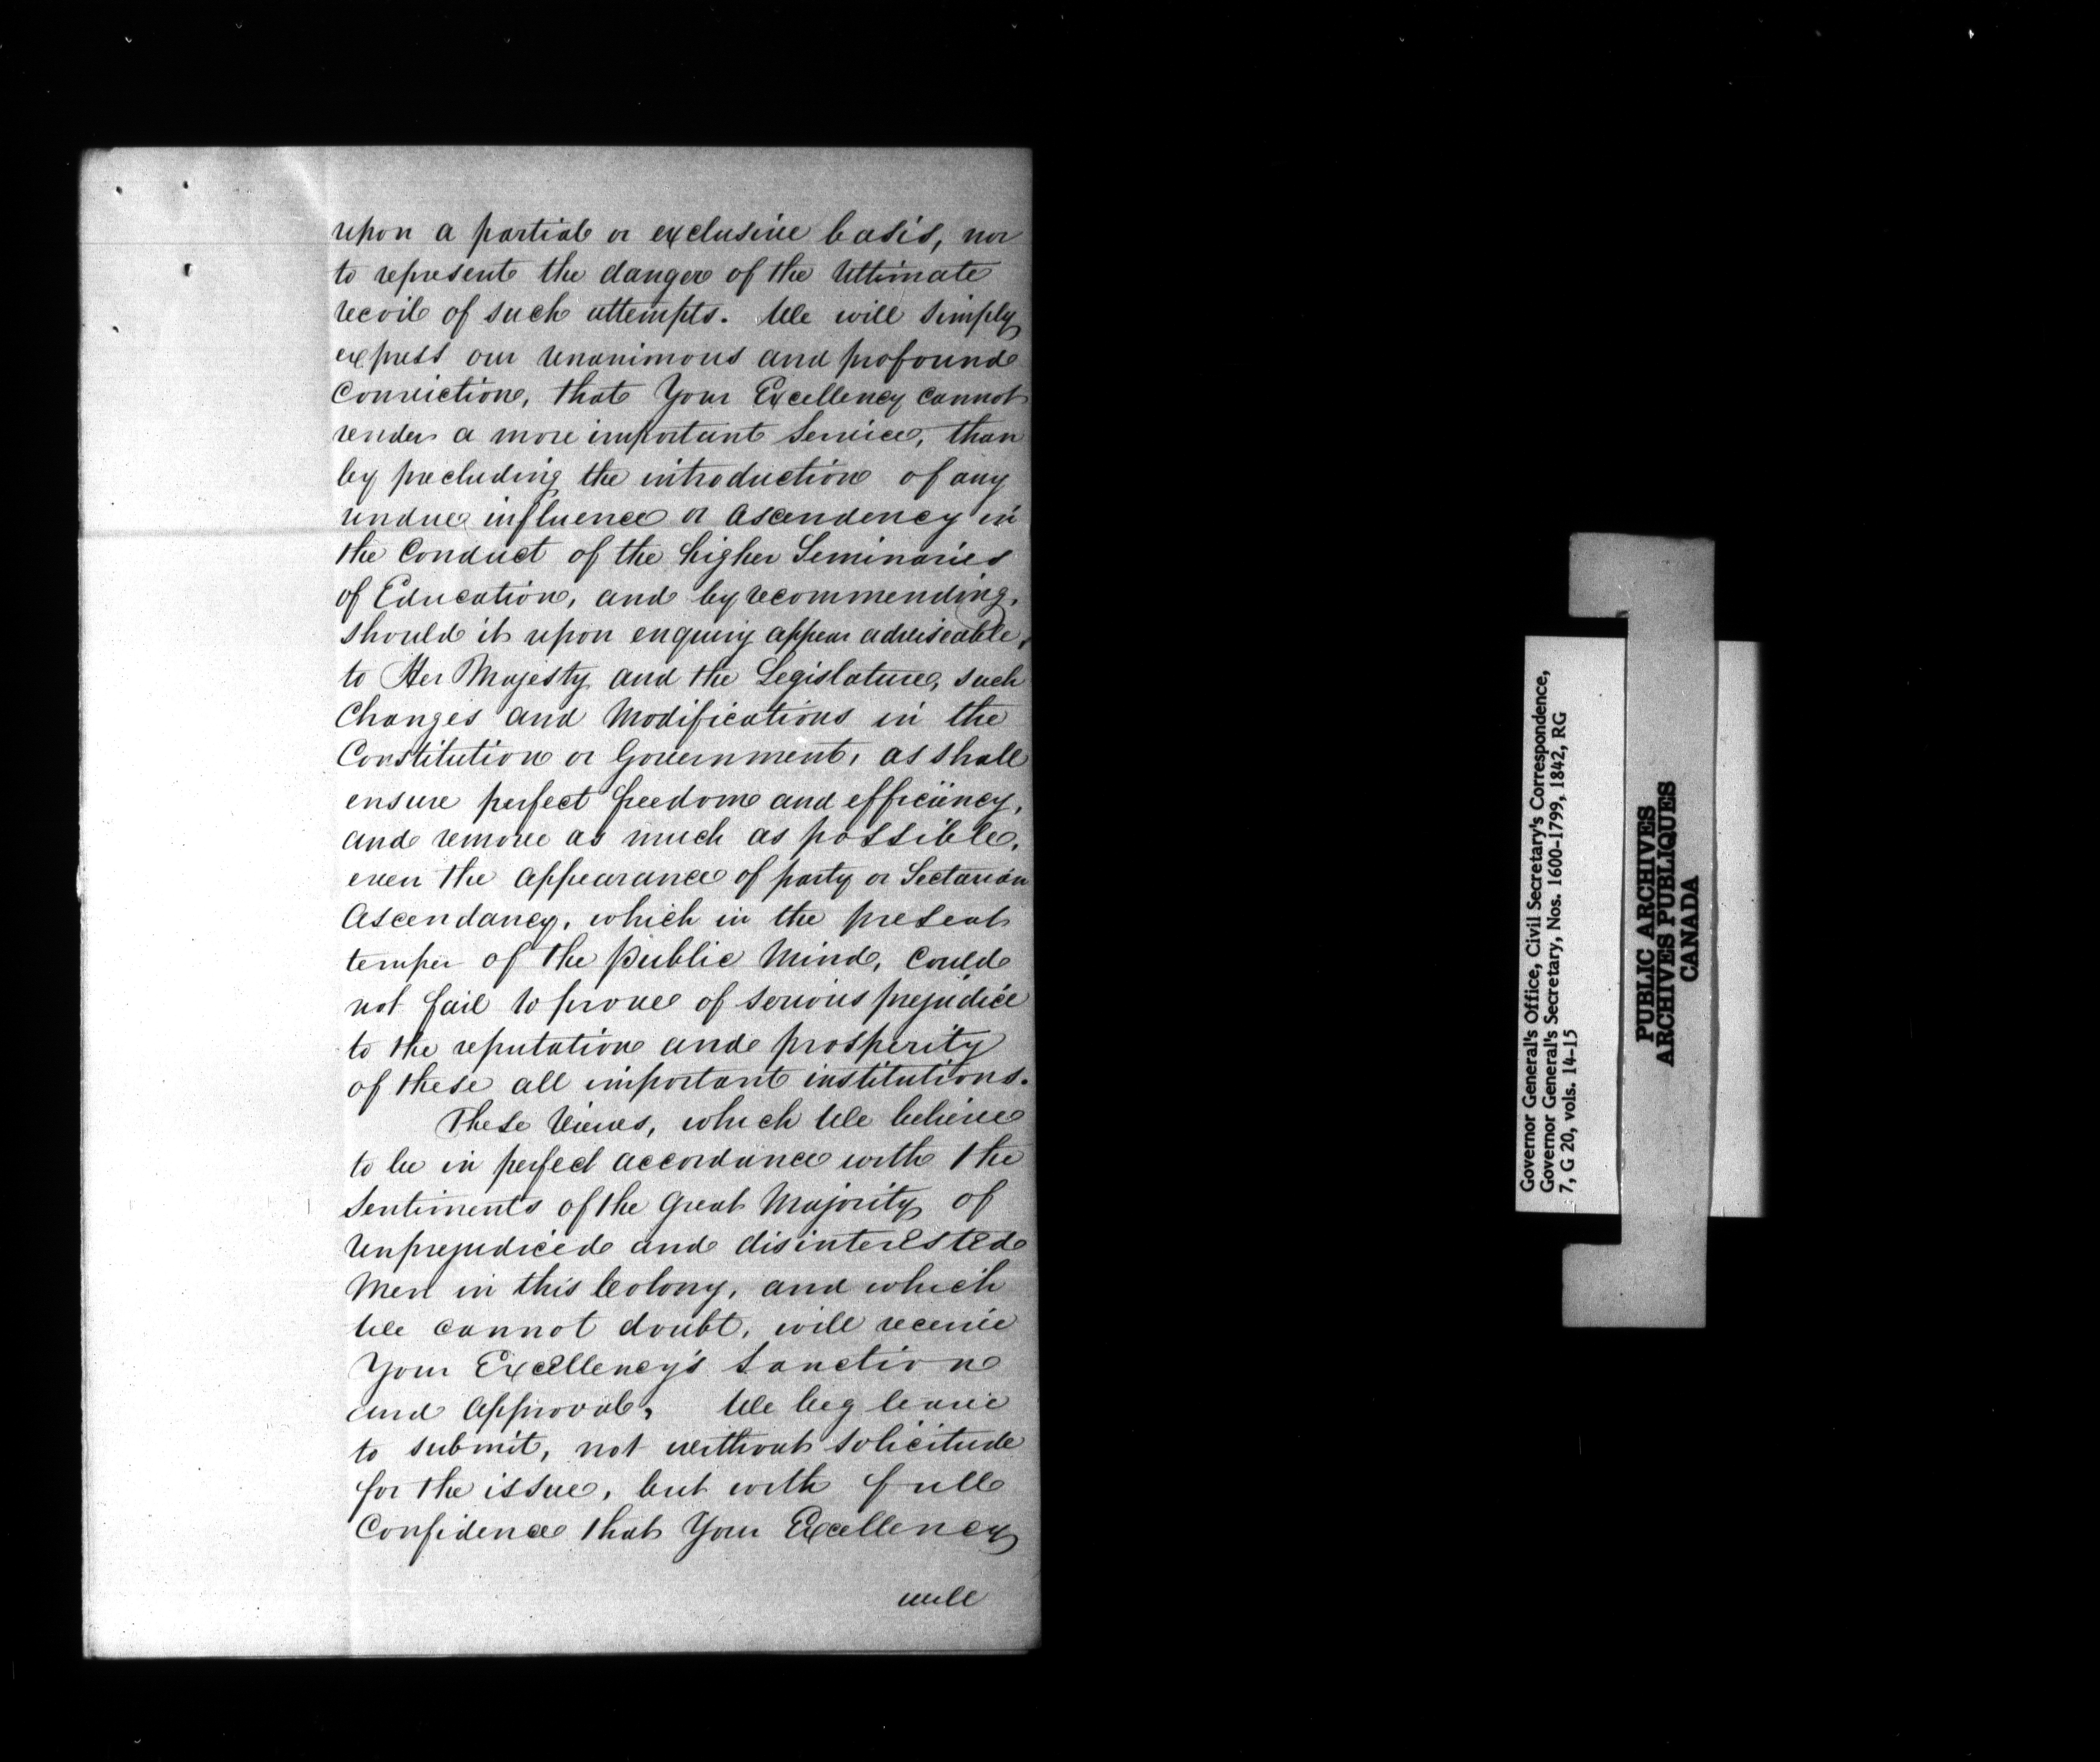 upon a partial or exclusive basis, nor
to represent the danger of the Ultimate
recoil of such attempts. We will simply
express our unanimous and profound
Conviction, that Your Excellency cannot
render a more important Service, than
by precluding the introduction of any
undue influence or Ascendency in
the Conduct of the higher Seminaries
of Education, and by recommending,
should it upon enquiry appear adviseable,
to Her Majesty and the Legislature, such
Changes and Modifications in the
Constitution or Government, as shall
ensure perfect freedom and efficiency,
and remove as much as possible,
even the appearance of party or Sectarian
Ascendancy, which in the present
temper of the public Mind, Could
not fail to prove of serious prejudice
to the reputation and prosperity
of these all important institutions.
These Views, which We believe
to be in perfect accordance with the
Sentiments of the Great Majority of
Unprejudiced and disinterested
Men in this Colony, and which
We cannot doubt, will receive
Your Excellency's Sanction
and Approval, We beg leave
to submit, not without Solicitude
for the issue, but with full
Confidence that Your Excellency
will
Governor General's Office, Civil Secretary's Correspondence,
Governor General's Secretary, Nos. 1600-1799, 1842, RG
7, G 20, vols. 14-15
PUBLIC ARCHIVES
ARCHIVES PUBLIQUES
CANADA